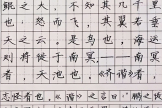 鲲之大，不知其几千里
也；怒而飞，其翼若垂
天之云。是鸟也，海运
则将徙于南冥。南冥
者，天池也。《齐谐》者，
志怪者也。《谐》之言曰：“鹏之徙